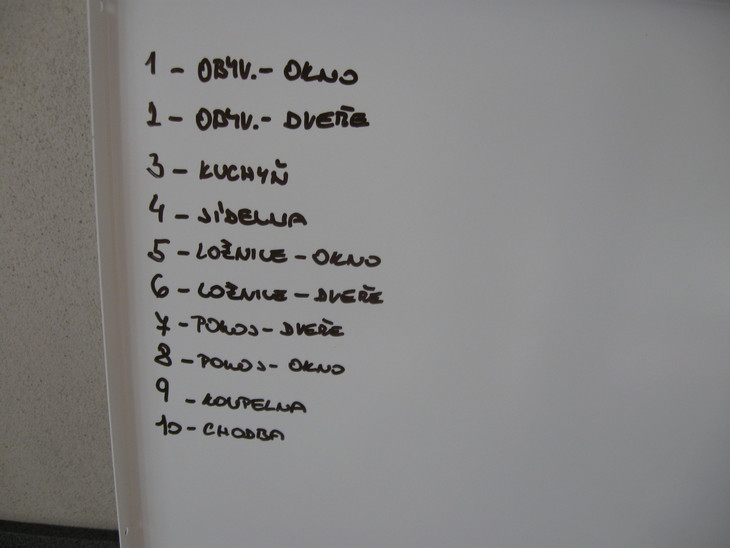 1 - OBÝV. - OKNO
2 - OBÝV. - DVEŘE
3 - KUCHYŇ
4 - JÍDELNA
5 - LOŽNICE - OKNO
6 - LOŽNICE - DVEŘE
7 - POKOJ - DVEŘE
8 - POKOJ - OKNO
9 - KOUPELNA
10 - CHODBA